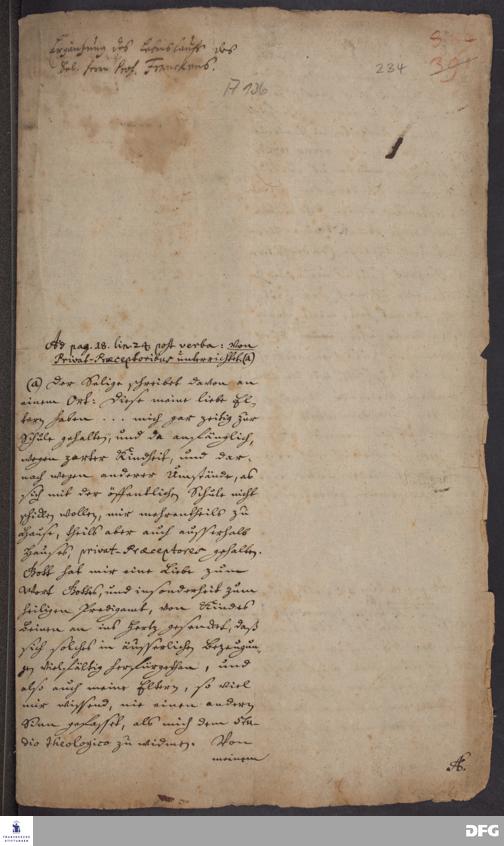 Ergäntzung des Lebenslaufs des
Sel. Herrn Prof. Franckens.
234
39
A 196
Ad pag. 18. lin. 24 post verba: Von
Privat-Præceptoribus unterrichtet. (a)
(a) Der Selige schreibet davon an
einem Ort: Diese meine liebe El-
tern haben ... mich gar zeitig zur
Schule gehalten, und da anfänglich,
wegen zarter Kindheit, und dar-
nach wegen anderer Umstände, es
sich mit der öffentlichen Schule nicht
schicken wollen, mir mehrentheils zu
Hause, theils aber auch ausserhalb
Hauses, privat-Præceptores gehalten.
Gott hat mir eine Liebe zum
Wort Gottes, und insonderheit zum
heiligen Predigamt, von Kindes
Beinen an ins Hertz gesencket, daß
sich solches in äusserlichen Bezeugun-
gen vielfältig herfürgethan, und
also auch meine Eltern, so viel
mir wissend, nie einen andern
Sinn gefasset, als mich dem Stu-
dio theologico zu widmen. Von
meinem
A.
FRANCKESCHE
STIFTUNGEN
DFG